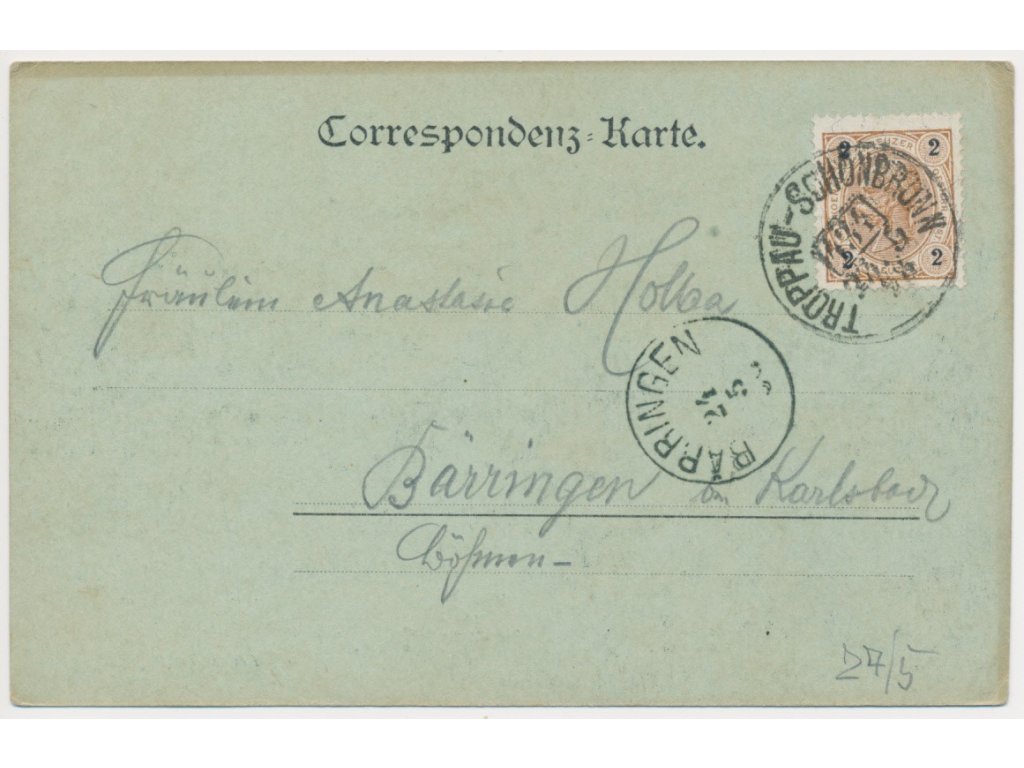 Correspondenz-Karte.
KREUZER
2 2
2 2
TROPPAU-SCHÖNBRUNN
Fräulein Anastasie Holba
BÄRRINGEN
24
5
Bärringen bei Karlsbad
Böhmen-
27/5